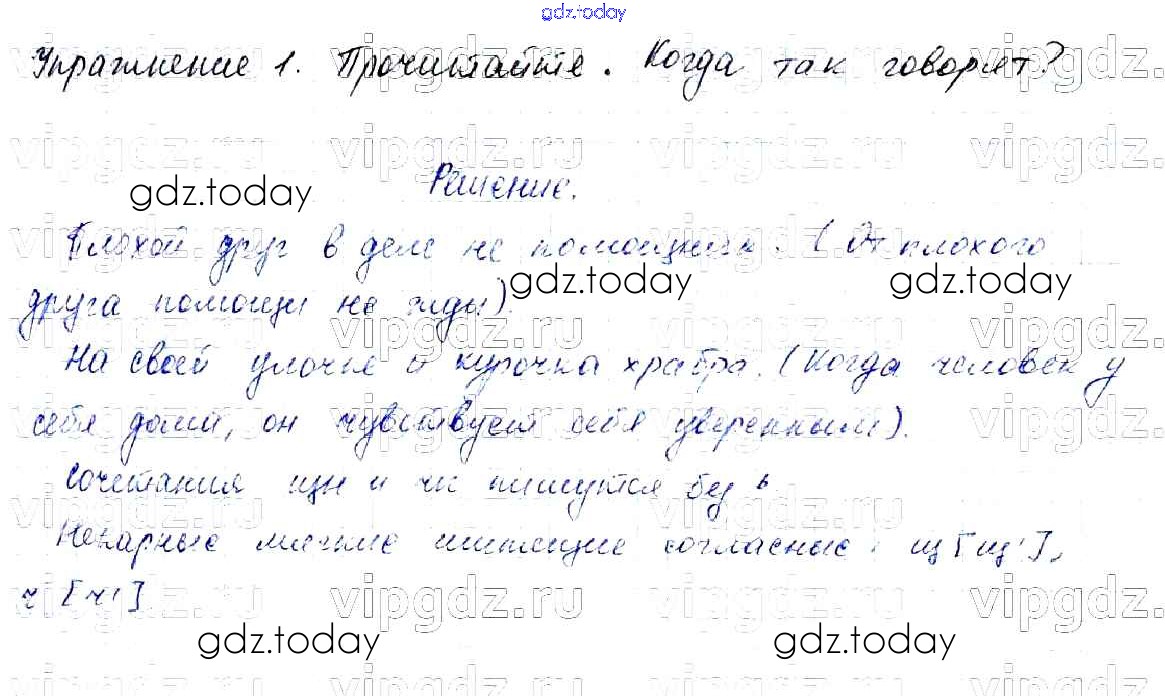 gdz.today
Упражнение 1. Прочитайте. Когда так говорят?
vipgdz.ru vipgdz.ru vipgdz.ru
gdz.today
Решение.
Плохой друг в деле не помощник. (От плохого
gdz.today gdz.today
друга помощи не жди).
На своей улочке и курочка храбра. (Когда человек у
себя дома, он чувствует себя уверенным).
Сочетания щн и чк пишутся без ь
Непарные мягкие шипящие согласные: щ [щ'],
ч [ч']
vipgdz.ru vipgdz.ru vipgdz.ru
gdz.today gdz.today